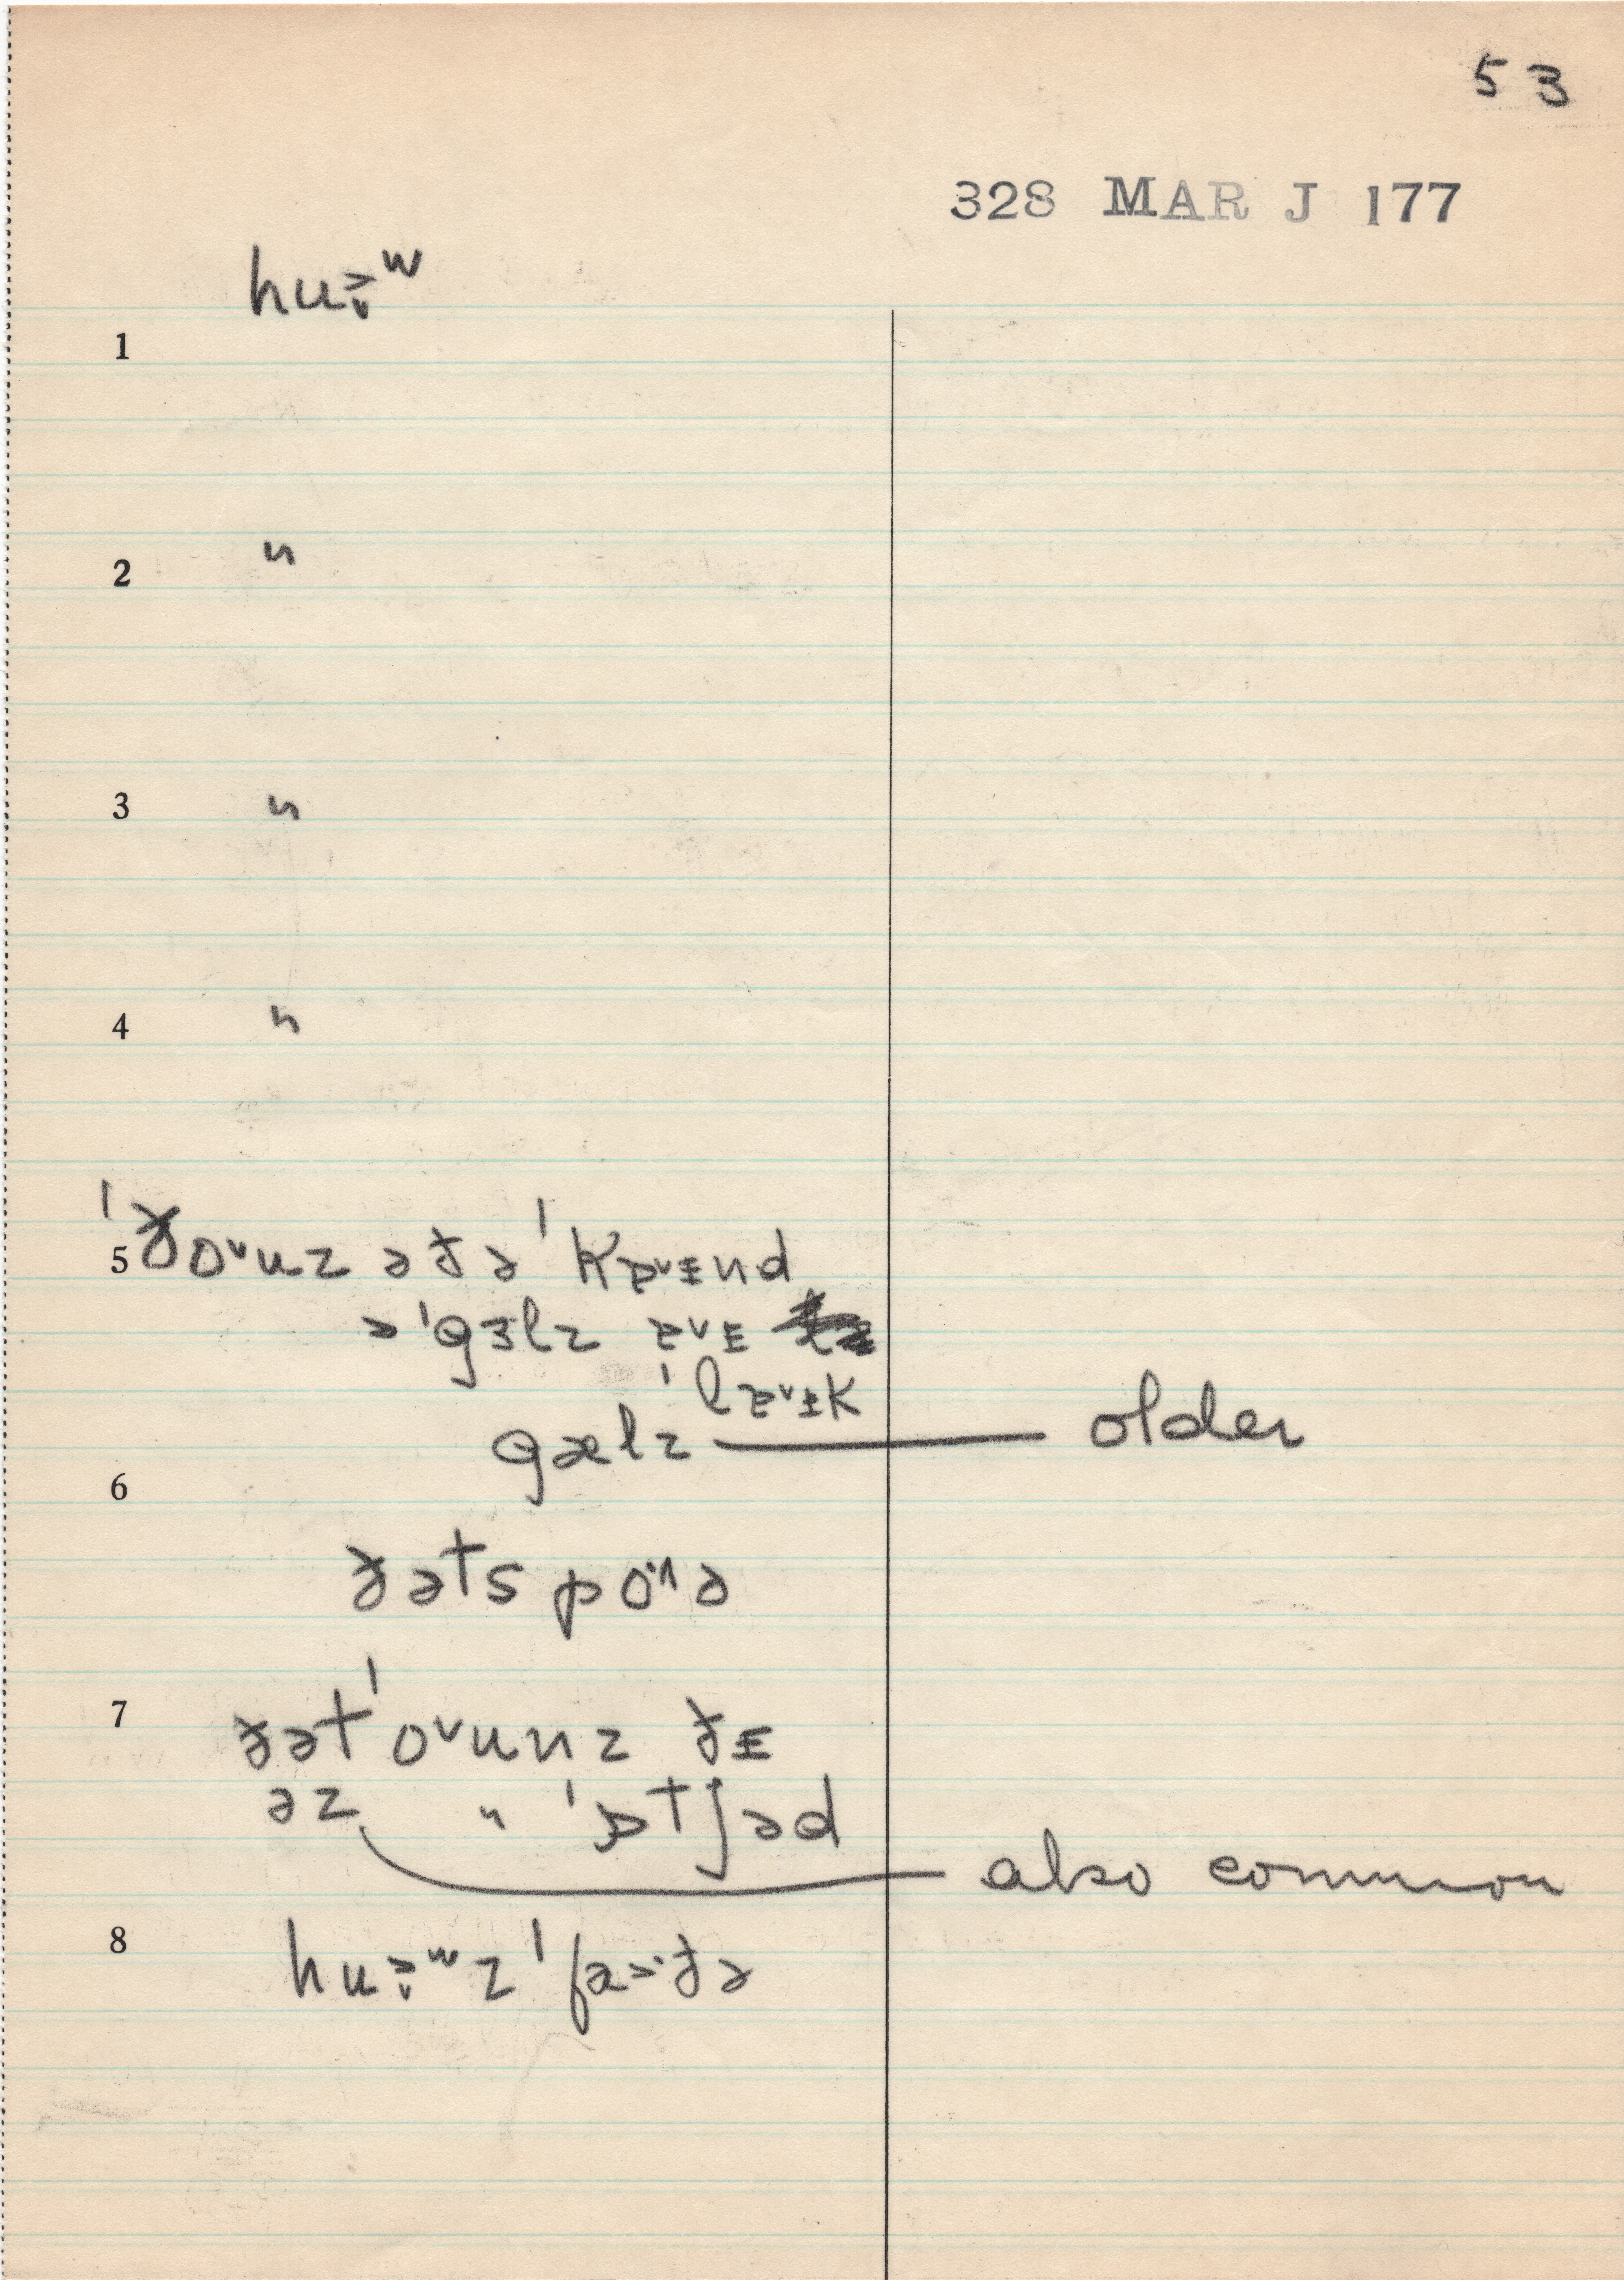 53
328 MAR J 177
huɔ̬ːʷ
1
2 〃
3 〃
4 〃
5 ˈðoᵛuz ə ðə ˈkɐᵛɪnd
ə ˈgɜlz ɐᵛɪ
ˈlɐᵛɪk
gælz — older
6
ðəts poə
7 ðətˈoᵛunz ðɪ
əz 〃 ˈɒtʃəd
also common
8 huɔ̬ːʷz ˈfaːðə